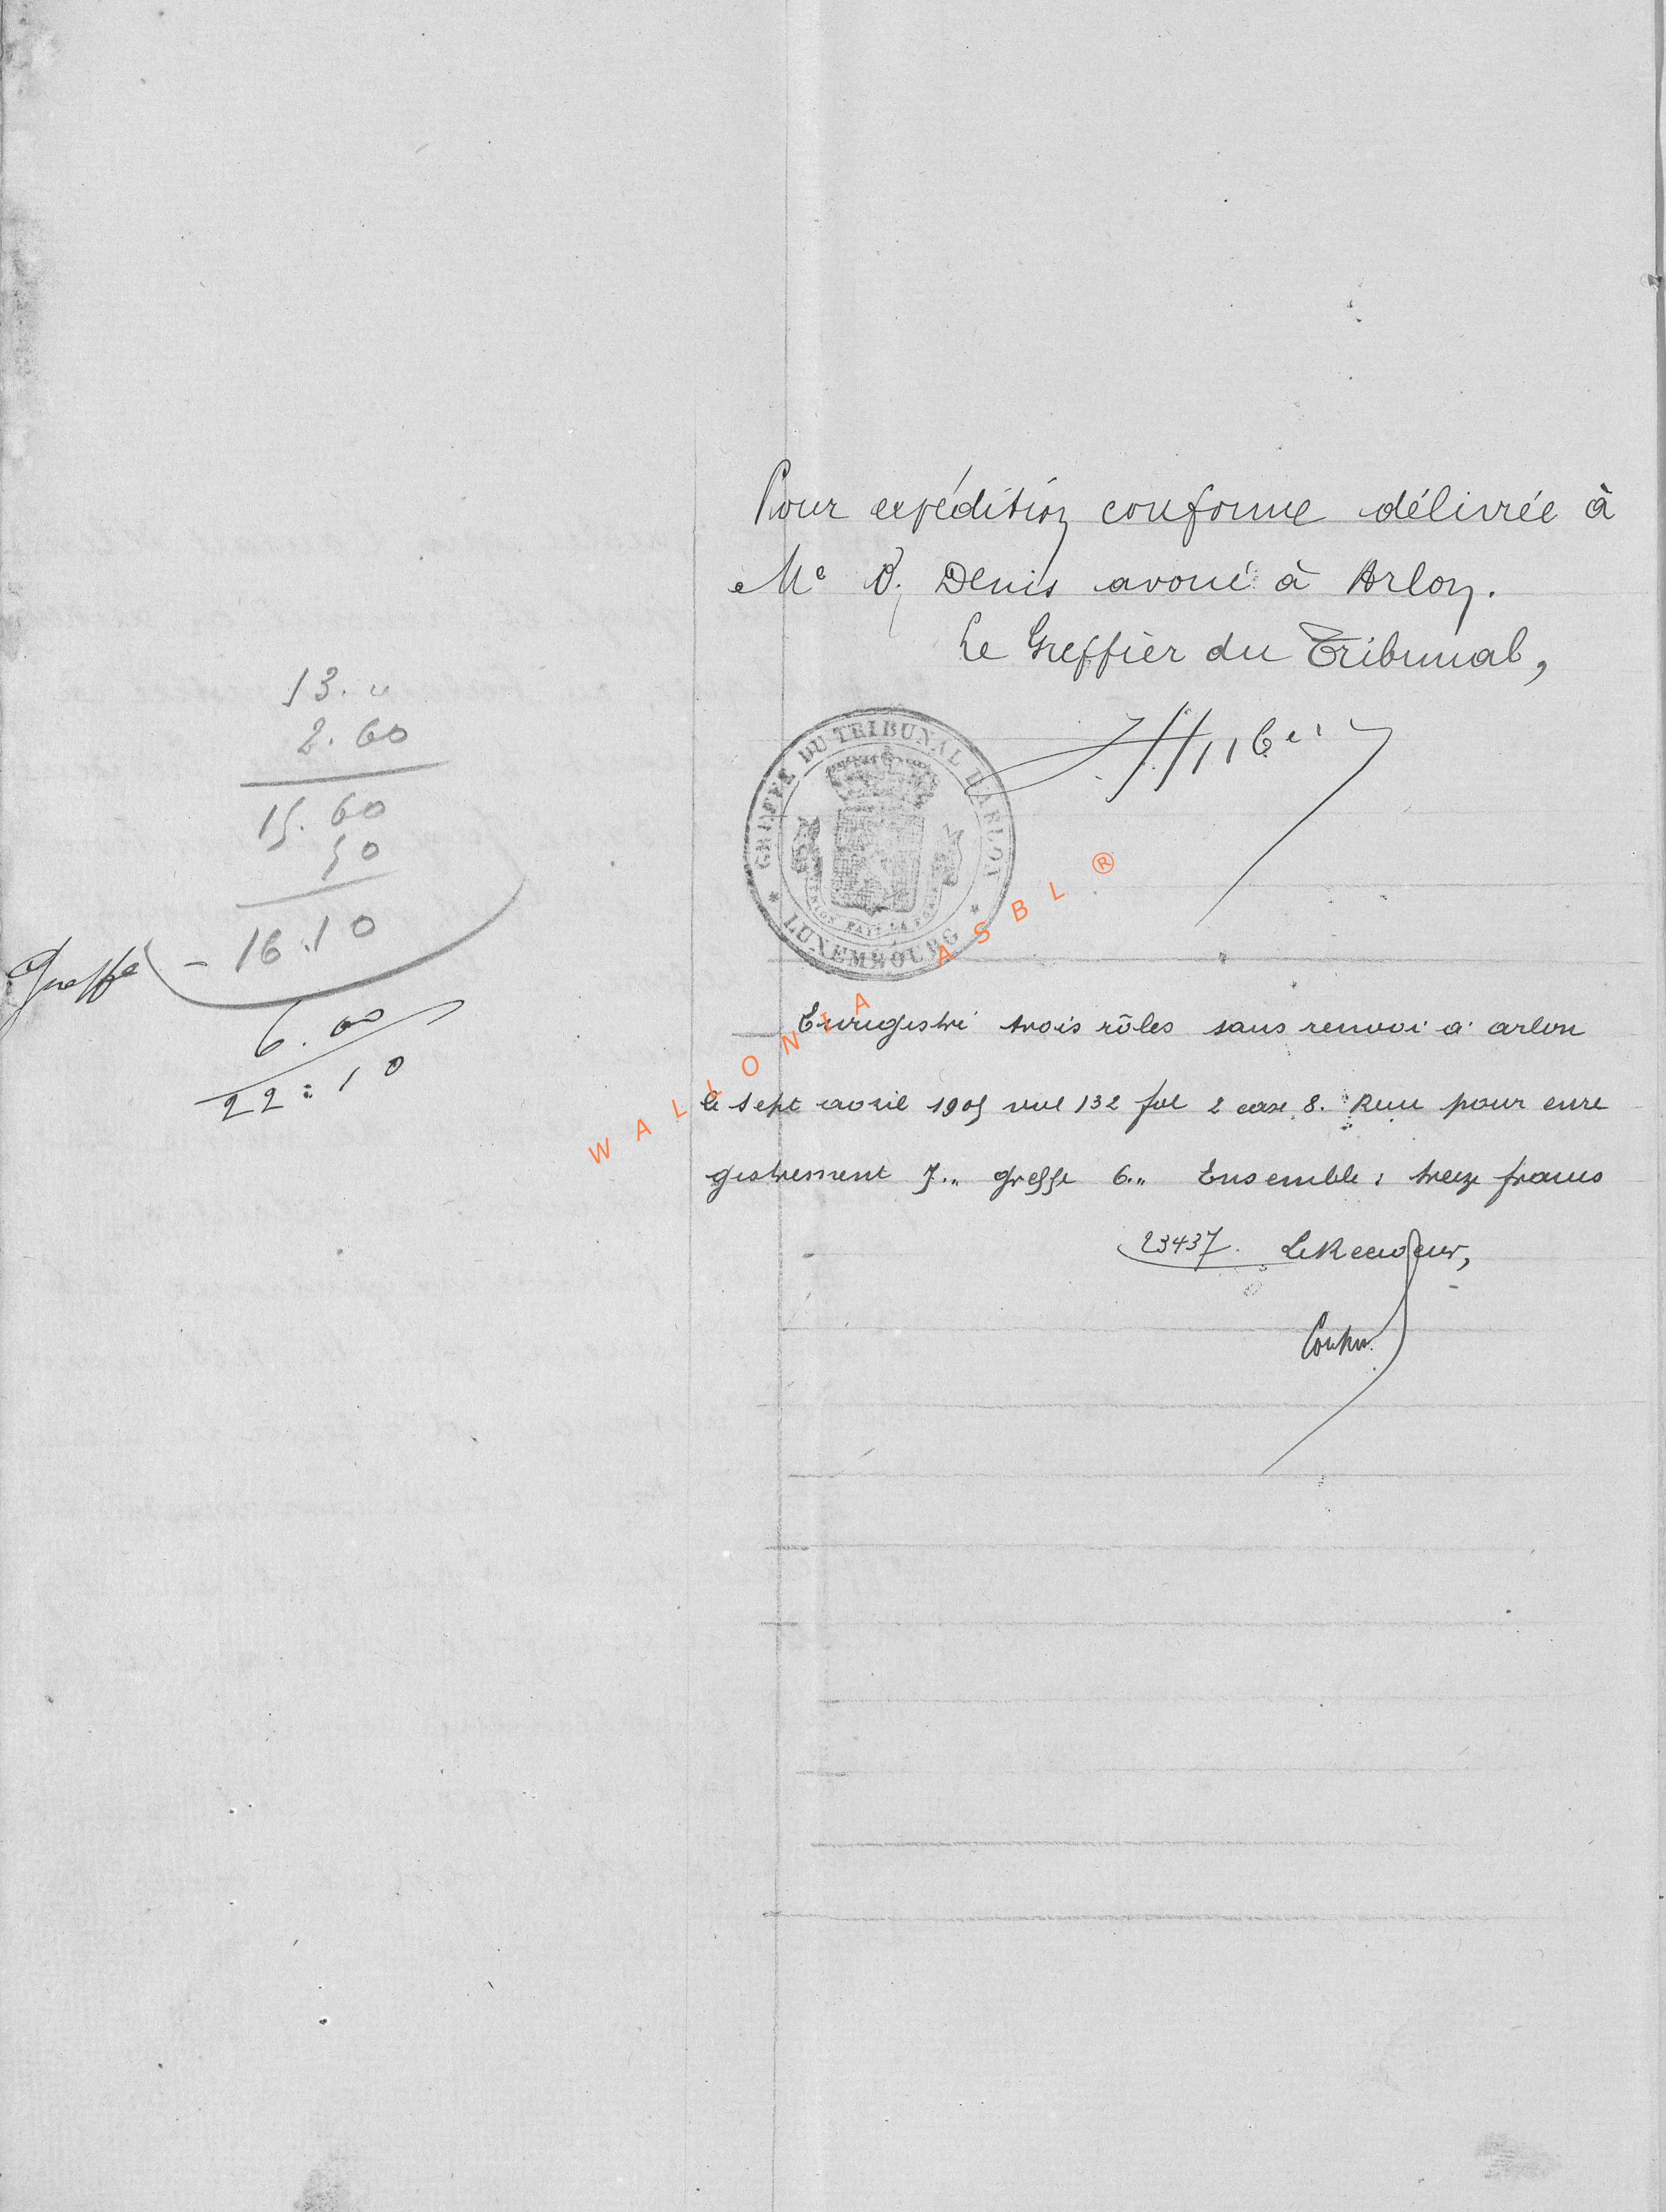 Pour expédition conforme délivrée à
Me Denis avoué à Arlon.
Le Greffier du Tribunal,
GREFFE DU TRIBUNAL D'ARLON
* LUXEMBOURG *
13. "
2.60
15.60
50
Greffe - 16.10
6.00
22:10
WALLONIA ASBL ®
Enregistré trois rôles sans renvoi à arlon
le sept avril 1905 vol 132 fol 2 case 8. Reçu pour enre
gistrement 7.. greffe 6.. Ensemble: treize francs
23437. Le Receveur,